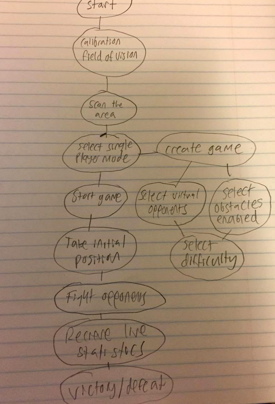 Start
Calibration
Field of Vision
Scan the
area
Select single
Player mode
Create game
Start game
Select virtual
opponents
Select
obstacles
enabled
Take initial
position
Select
difficulty
Fight opponents
Recieve live
statistics
Victory/defeat